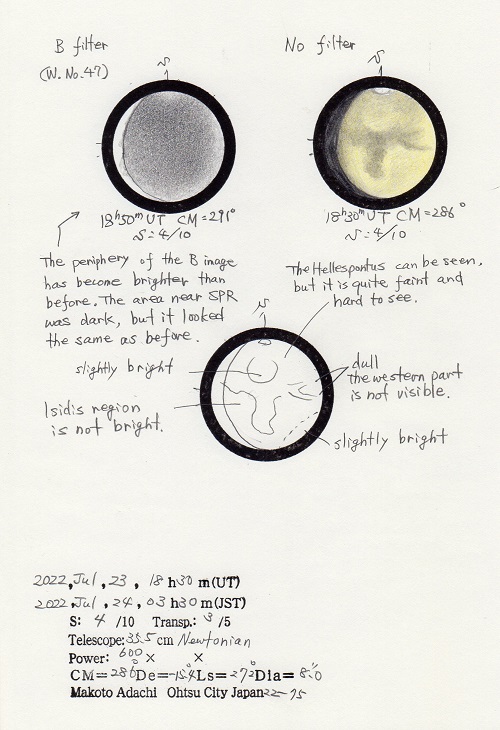 B filter
(W.No.47)
S
18h50mUT CM=291°
S=4/10
No filter
S
18h30mUT CM=286°
S=4/10
The periphery of the B image
has become brighter than
before. The area near SPR
was dark, but it looked
the same as before.
The Hellespontus can be seen,
but it is quite faint and
hard to see.
S
slightly bright
Isidis region
is not bright.
dull
the western part
is not visible.
slightly bright
2022, Jul, 23, 18 h 30 m(UT)
2022, Jul, 24, 03 h 30 m(JST)
S: 4 /10 Transp.: 3 /5
Telescope: 35.5 cm Newtonian
Power: 600 × ×
CM= 286° De= -15.4° Ls= 272° Dia= 8.″0
Makoto Adachi Ohtsu City Japan 22-75